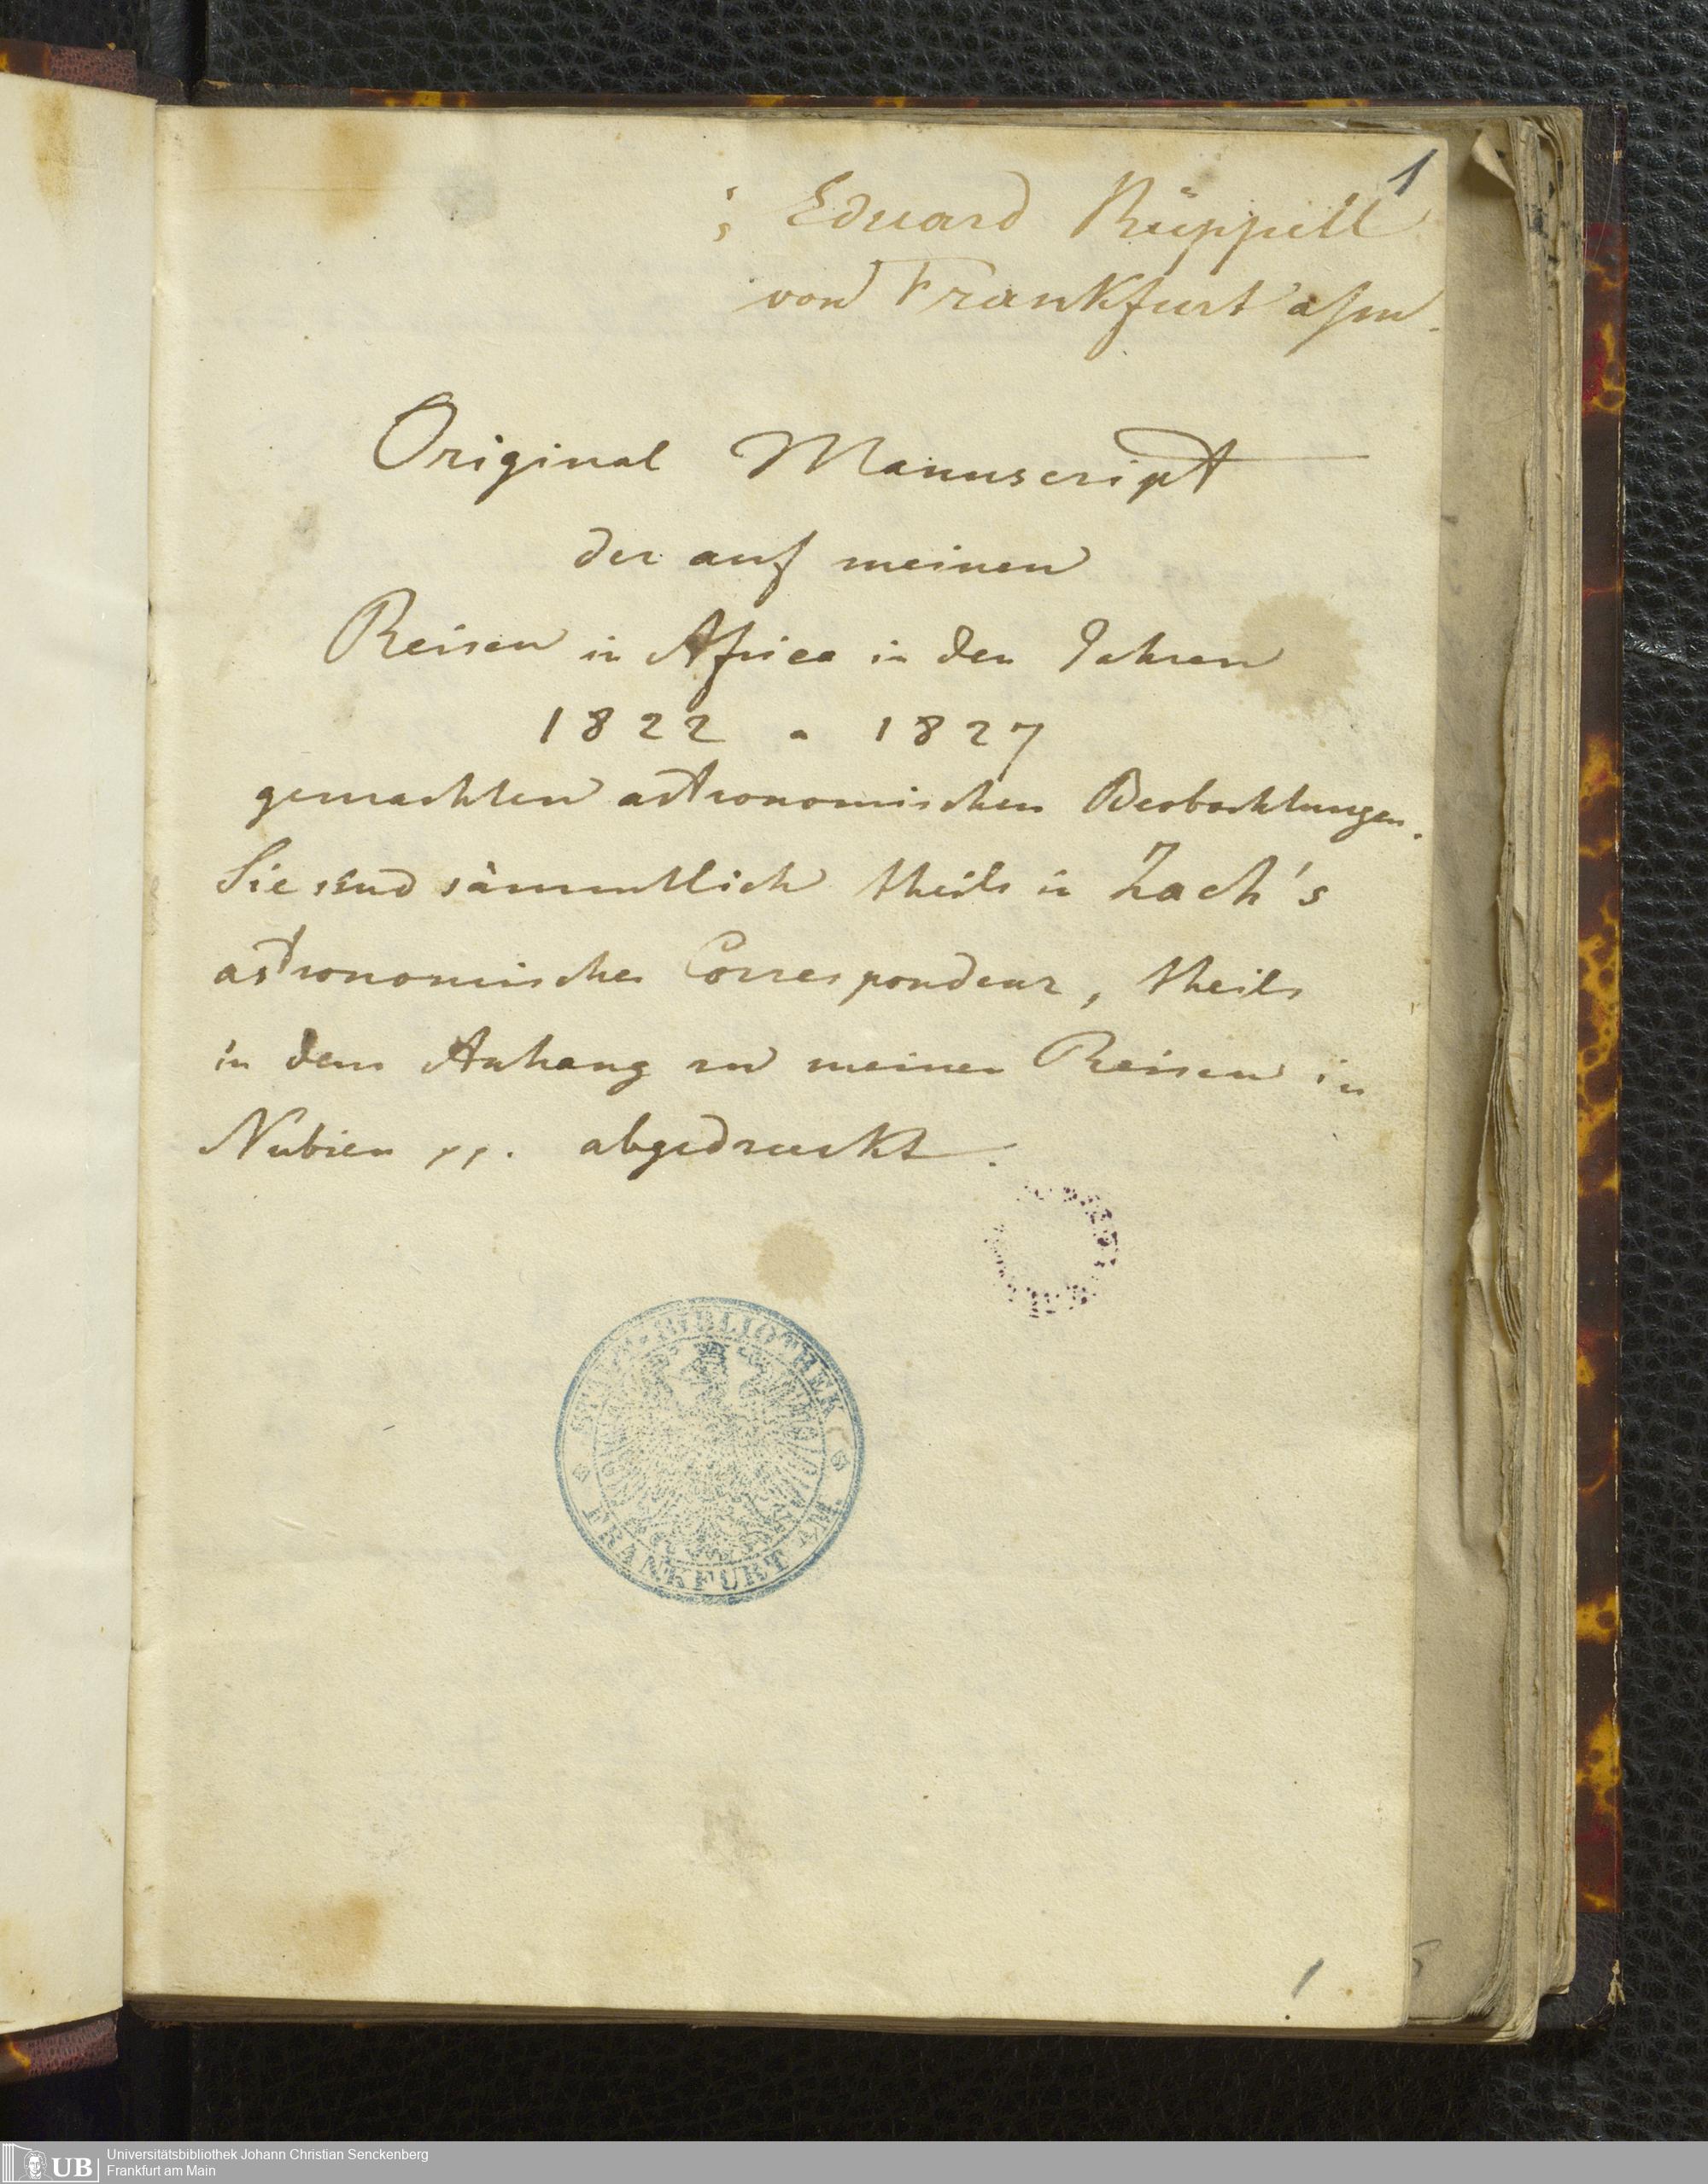 1
; Eduard Rüppell
von Frankfurt a/m.
Original Manuscript
der auf meinen
Reisen in Africa in den Jahren
1822 - 1827
gemachten astronomischen Beobachtungen.
Sie sind sämmtlich theils in Zach's
astronomischer Correspondenz, theils
in dem Anhang zu meinen Reisen in
Nubien pp. abgedruckt.
STADT-BIBLIOTHEK
FRANKFURT A/M.
1
UB
Universitätsbibliothek Johann Christian Senckenberg
Frankfurt am Main